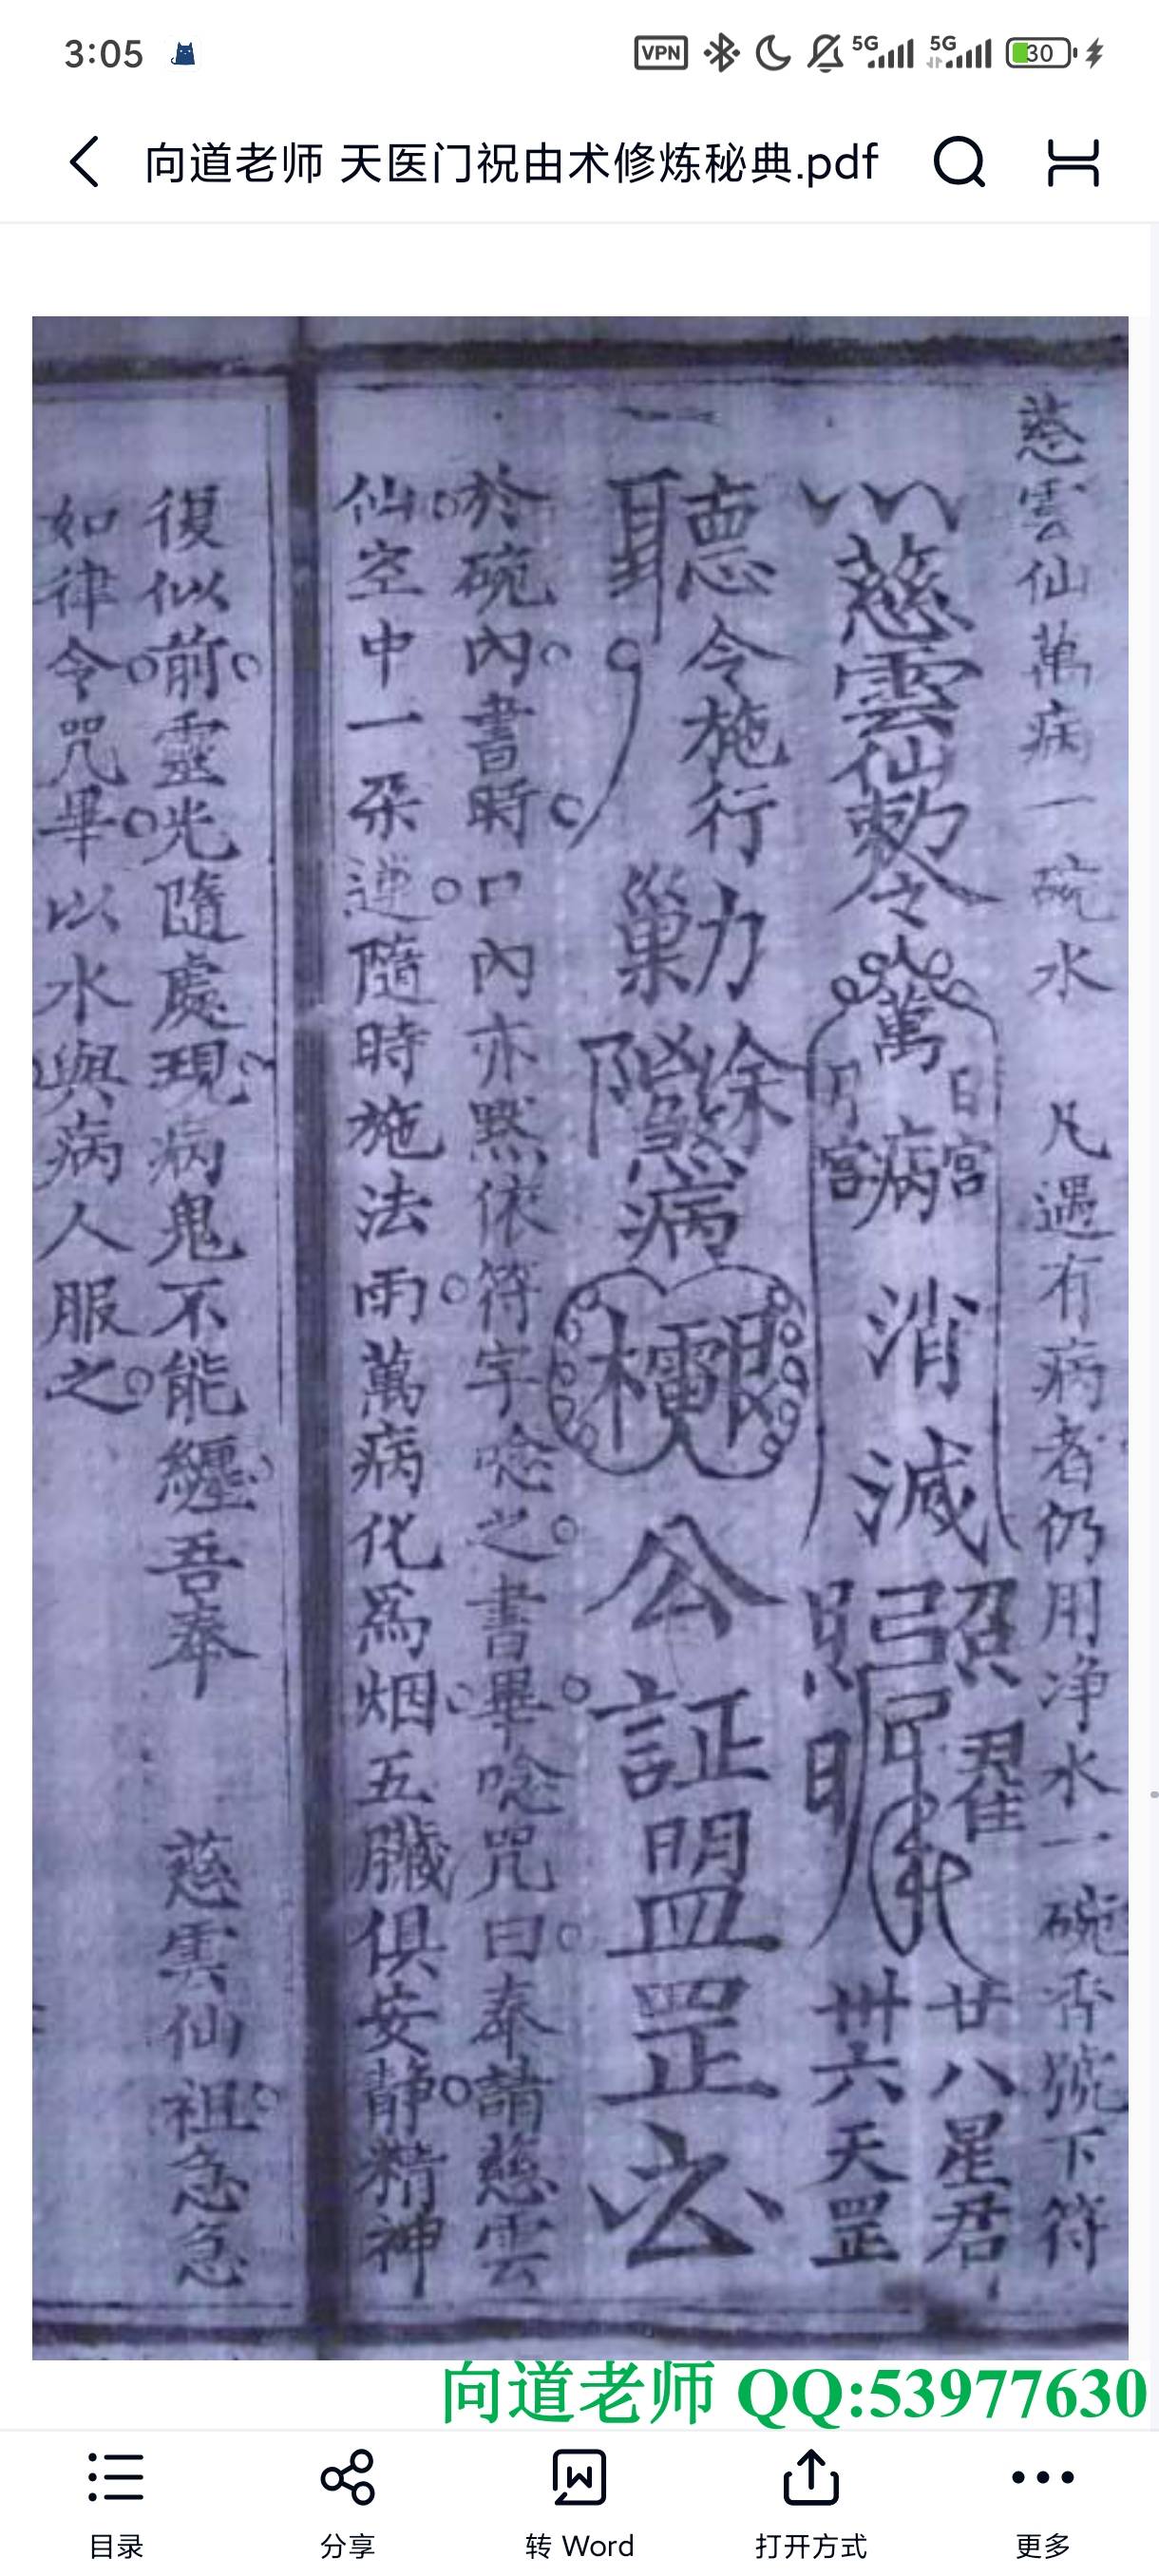 3:05
VPN
5G
5G
30
向道老师 天医门祝由术修炼秘典.pdf
慈雲仙萬病一碗水 凡遇有病者仍用净水一碗香號下符
慈雲仙敕令
萬病消滅
日宮
月宮
廿八星君
卅六天罡
聽令施行
病
公証盟罡
於碗內書時口內亦默依符字唸之書畢唸咒曰奉請慈雲
仙空中一朶遊隨時施法雨萬病化爲烟五臟俱安静精神
復似前靈光隨處現病鬼不能纏吾奉 慈雲仙祖急急
如律令咒畢以水與病人服之
向道老师 QQ:53977630
目录
分享
转 Word
打开方式
更多